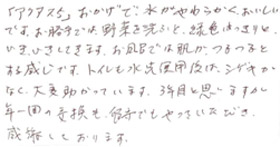 「アクアス」おかげで、水がやわらかくおいしい
です。お勝手では野菜を洗うと、緑色はっきりと、
いきいきしてきます。お風呂では肌が、つるつると
する感じです。トイレも水洗使用後は、シゲキが
なく、大変助かっています。3年目と思いますが
年一回の交換も、修子でもやっていただき、
感謝しております。